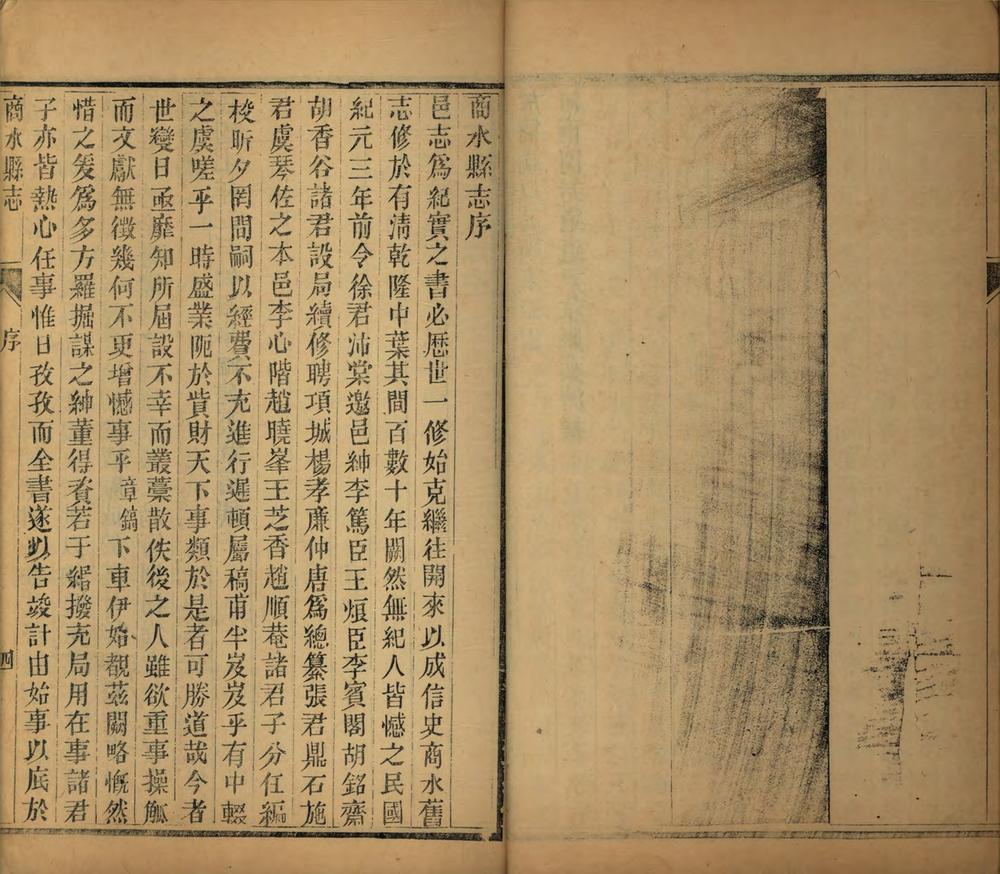 商水縣志序
邑志爲紀實之書必歷世一修始克繼往開來以成信史商水舊
志修於有淸乾隆中葉其間百數十年闕然無紀人皆憾之民國
紀元三年前令徐君沛棠邀邑紳李篤臣王烜臣李賓閣胡銘齋
胡香谷諸君設局續修聘項城楊孝廉仲唐爲總纂張君鼎石施
君虞琴佐之本邑李心階趙曉峯王芝香趙順菴諸君子分任編
校昕夕罔間嗣以經費不充進行遲頓屬稿甫半岌岌乎有中輟
之虞嗟乎一時盛業阨於貲財天下事類於是者可勝道哉今者
世變日亟靡知所屆設不幸而叢藁散佚後之人雖欲重事操觚
而文獻無徵幾何不更增憾事乎章鎬下車伊始覩茲闕略慨然
惜之爰爲多方羅掘謀之紳董得資若于緡撥充局用在事諸君
子亦皆熱心任事惟日孜孜而全書遂以告竣計由始事以底於
商水縣志
序
四